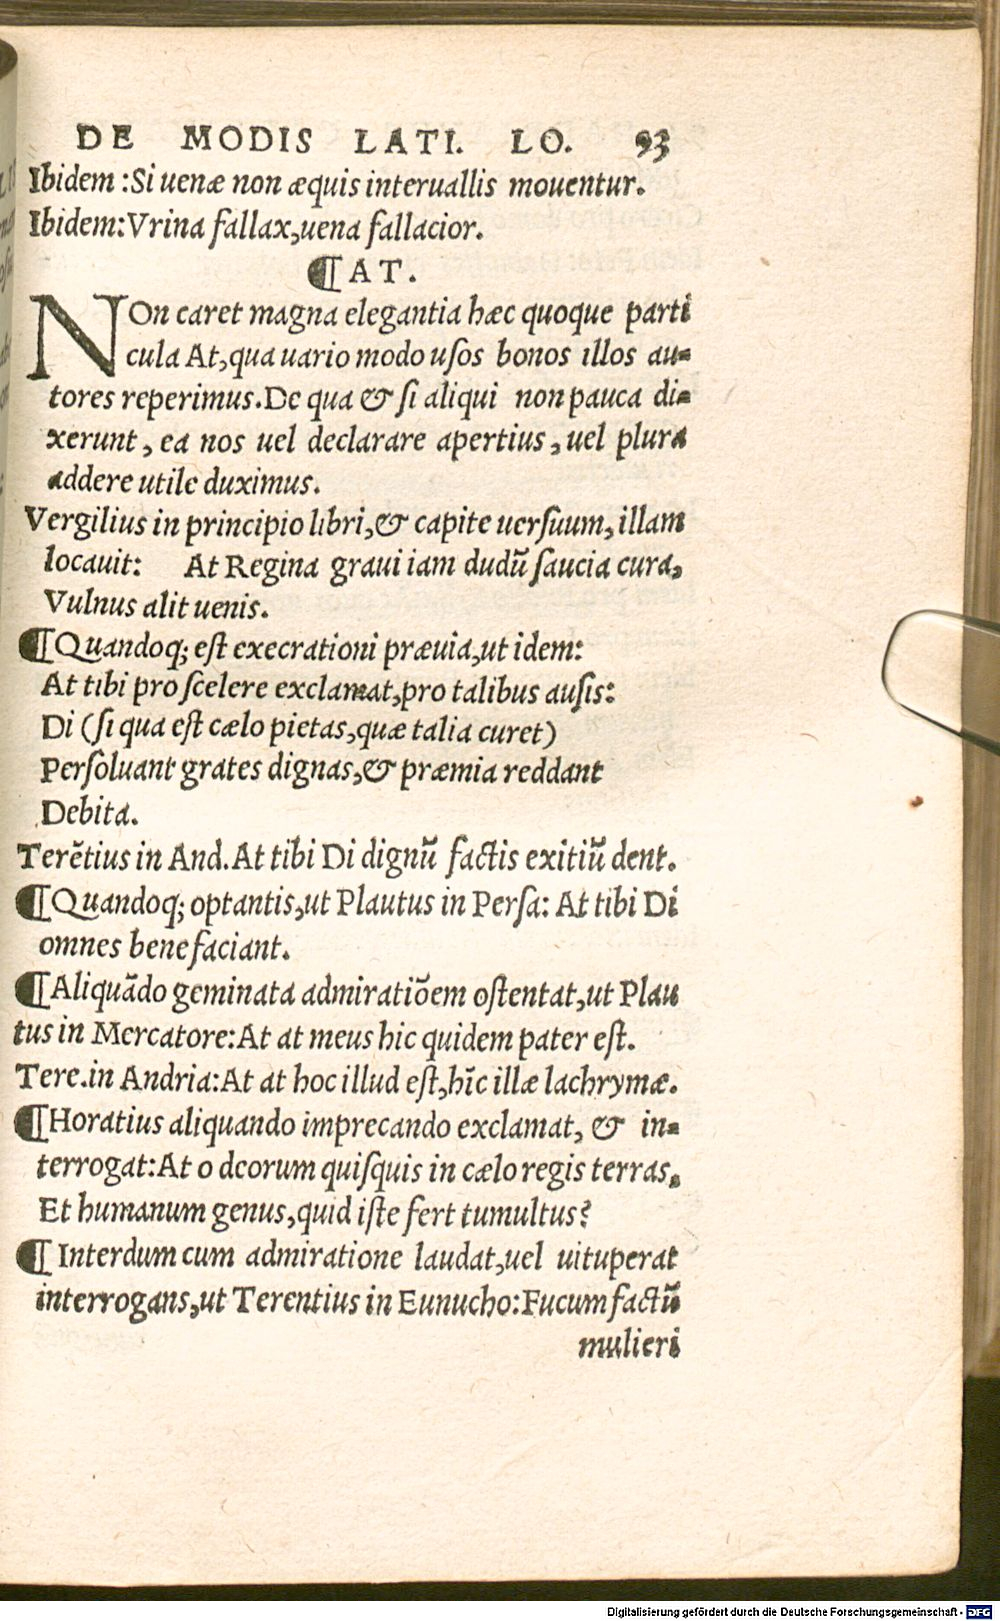 DE MODIS LATI. LO. 93
Ibidem :Si uenæ non æquis interuallis mouentur.
Ibidem:Vrina fallax,uena fallacior.
¶AT.
NOn caret magna elegantia hæc quoque parti
cula At,qua uario modo usos bonos illos au-
tores reperimus.De qua & si aliqui non pauca di-
xerunt, ea nos uel declarare apertius, uel plura
addere utile duximus.
Vergilius in principio libri,& capite uersuum, illam
locauit: At Regina graui iam dudū saucia cura,
Vulnus alit uenis.
¶Quandoq; est execrationi præuia,ut idem:
At tibi pro scelere exclamat,pro talibus ausis:
Di (si qua est cælo pietas,quæ talia curet)
Persoluant grates dignas,& præmia reddant
Debita.
Terētius in And. At tibi Di dignū factis exitiū dent.
¶Quandoq; optantis,ut Plautus in Persa: At tibi Di
omnes benefaciant.
¶Aliquādo geminata admiratiōem ostentat,ut Plau
tus in Mercatore:At at meus hic quidem pater est.
Tere.in Andria:At at hoc illud est,hīc illæ lachrymæ.
¶Horatius aliquando imprecando exclamat, & in-
terrogat:At o deorum quisquis in cælo regis terras,
Et humanum genus,quid iste fert tumultus?
¶ Interdum cum admiratione laudat,uel uituperat
interrogans,ut Terentius in Eunucho:Fucum factū
mulieri
Digitalisierung gefördert durch die Deutsche Forschungsgemeinschaft - DFG